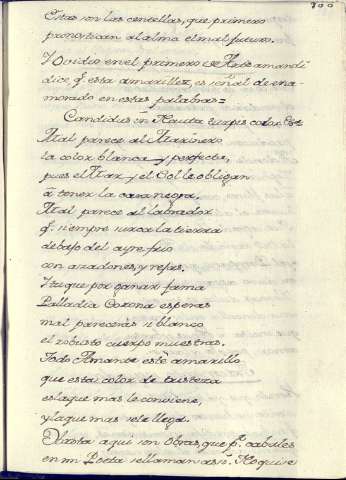 100
Estas son las centellas, que primero
pronostican al alma el mal futuro.
Y Ovidio en el primero de Arte amandi
dice, q.e esta amarillez, es señal de ena-
morado en estas palabras=
Candidus in Nauta turpis color Est
Mal parece al Marinero
la color blanca y perfecta,
pues el Mar y el Sol le obligan
à tener la cara negra.
Mal parece al labrador
q.e siempre surca la tierra
debajo del ayre frio
con azadones, y rejas.
Y tu que por ganar fama
Palladia Corona esperas
mal pareceràs si blanco
el robusto cuerpo muestras.
Todo Amante estè amarillo
que esta color de tristeza
es la que mas le conviene,
y la que mas se le llega.
Hasta aqui son Obras, que p.r cabales
en mi Poeta se llaman asi. No quise